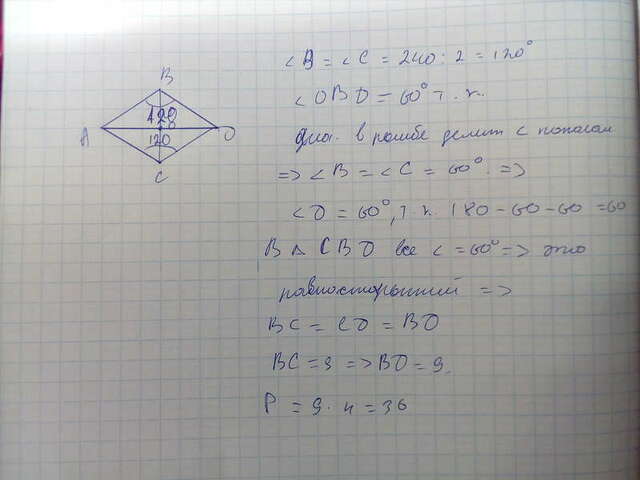 B
120
A
D
120
C
∠B = ∠C = 240 : 2 = 120°
∠OBD = 60° т.к.
диаг. в ромбе делит с попалам
=> ∠B = ∠C = 60° =>
∠D = 60°, т.к. 180 - 60 - 60 = 60
В △ CBD все ∠ = 60° => это
равносторонний =>
BC = CD = BD
BC = 9 => BD = 9.
P = 9 · 4 = 36